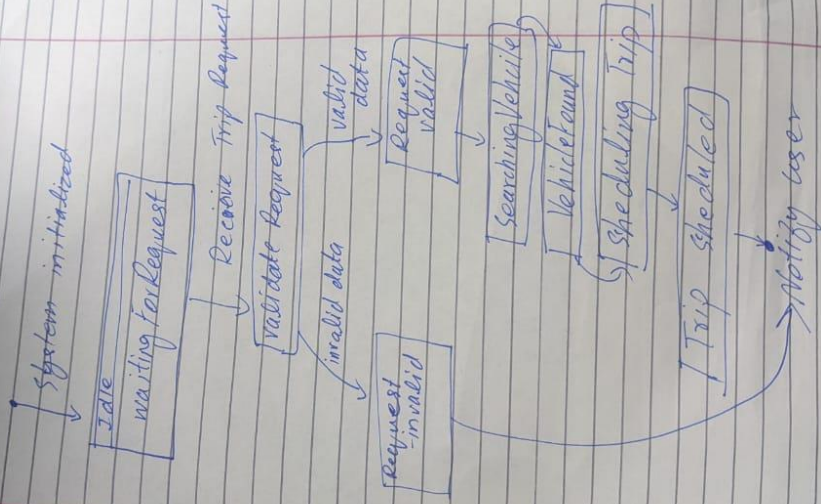 System initialized
Idle
waiting For Request
Recieve Trip Request
Validate Request
invalid data
valid
data
Request
invalid
Request
valid
Searching Vehicle
Vehicle Found
Sheduling Trip
Trip Sheduled
Notify user